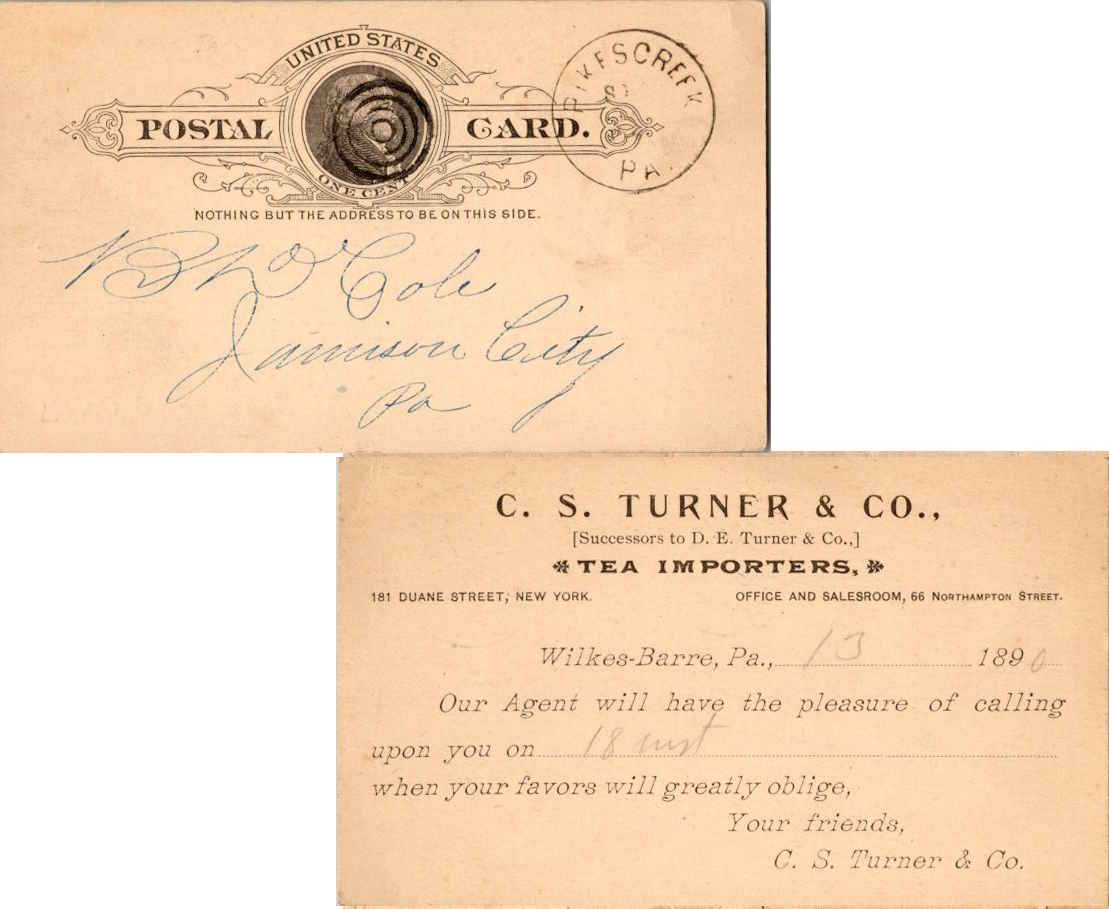 UNITED STATES
POSTAL CARD.
ONE CENT
NOTHING BUT THE ADDRESS TO BE ON THIS SIDE.
PIKES CREEK
PA.
Cole
Jamison City
Pa
C. S. TURNER & CO.,
[Successors to D. E. Turner & Co.,]
TEA IMPORTERS,
181 DUANE STREET, NEW YORK. OFFICE AND SALESROOM, 66 NORTHAMPTON STREET.
Wilkes-Barre, Pa., 13 1890
Our Agent will have the pleasure of calling
upon you on 18 inst
when your favors will greatly oblige,
Your friends,
C. S. Turner & Co.